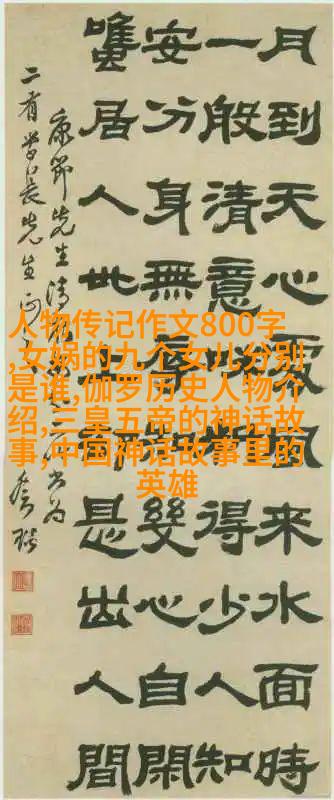 月到天心處風來水面時
一般清意味料得少人知
安分身無辱知幾心自閑
雖居人世上却是出人間
康節先生清
二有學長先生正
人物传记作文800字
,女娲的九个女儿分别
是谁,伽罗历史人物介
绍,三皇五帝的神话故
事,中国神话故事里的
英雄